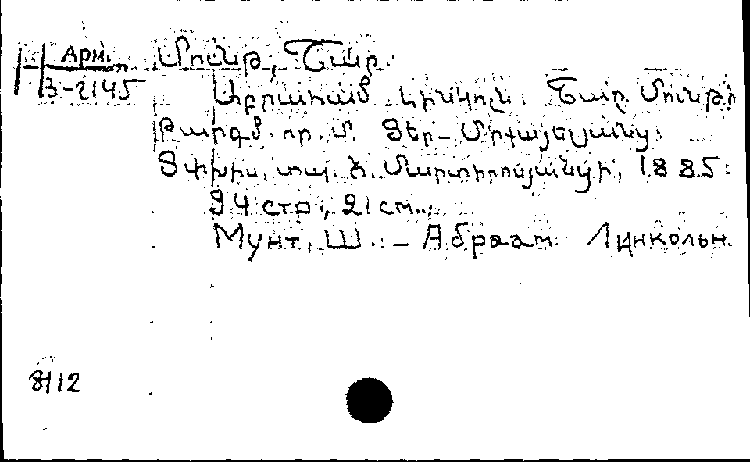 Арм.
3-2145
Մունթ, Շառլ.
Աբրահամ Լինկոլն. Շառլ Մունթի
Թարգմ. Տեր-
Թիֆլիս, տպ. Մ. Մարտիրոսյանցի, 1885.
94 стр., 21 см.
Мунт, Ш. - Абраам Линкольн.
8112